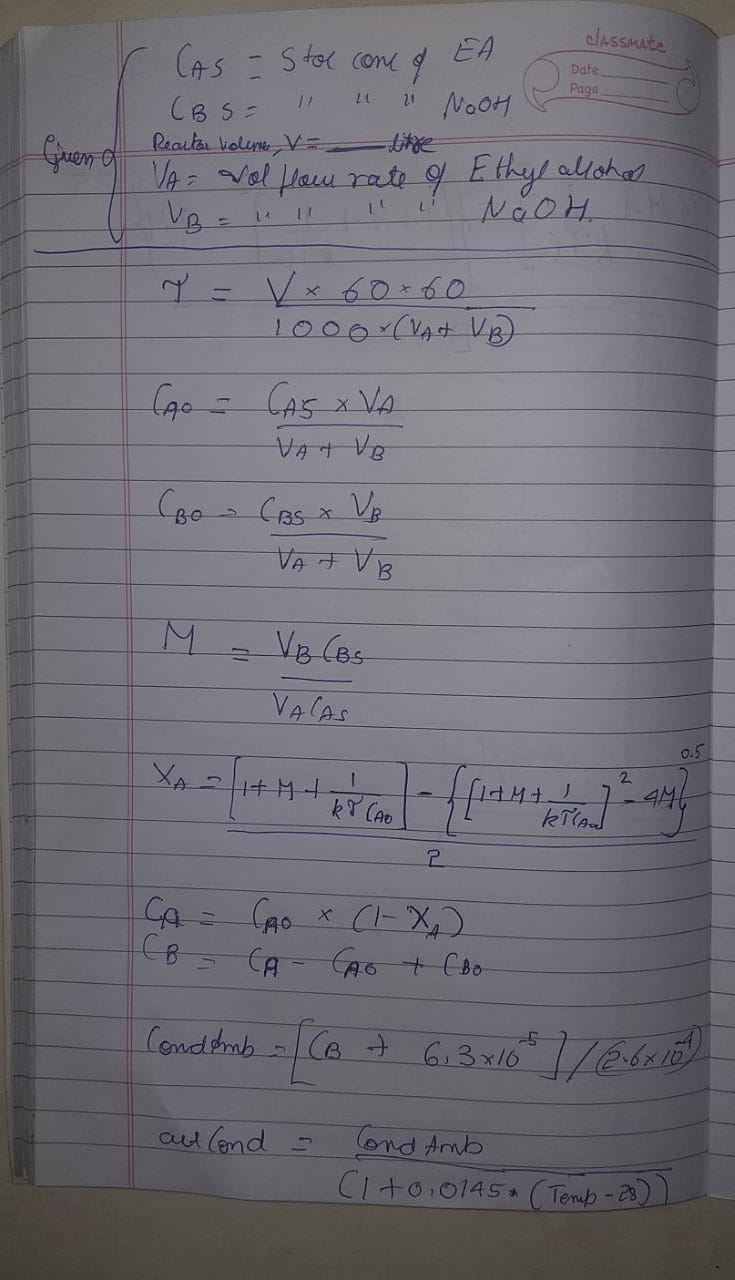 classmate
Date
Page
CAS = Stoe conc of EA
CBS = " " " NaOH
Given
Reactor Volume, V = litre
VA = Vol flow rate of Ethyl alcohol
VB = " " " " NaOH.
τ = V × 60 × 60
1000 × (VA + VB)
CAO = CAS × VA
VA + VB
CBO = CBS × VB
VA + VB
M = VB CBS
VA CAS
XA = [1 + M + 1/kτCAO] - {[1 + M + 1/kτCAO]² - 4M}^0.5
2
CA = CAO × (1 - XA)
CB = CA - CAO + CBO
CondAmb = [CB + 6.3×10^-5] / (2.6×10^-4)
actCond = CondAmb
(1 + 0.0145 * (Temp - 28))